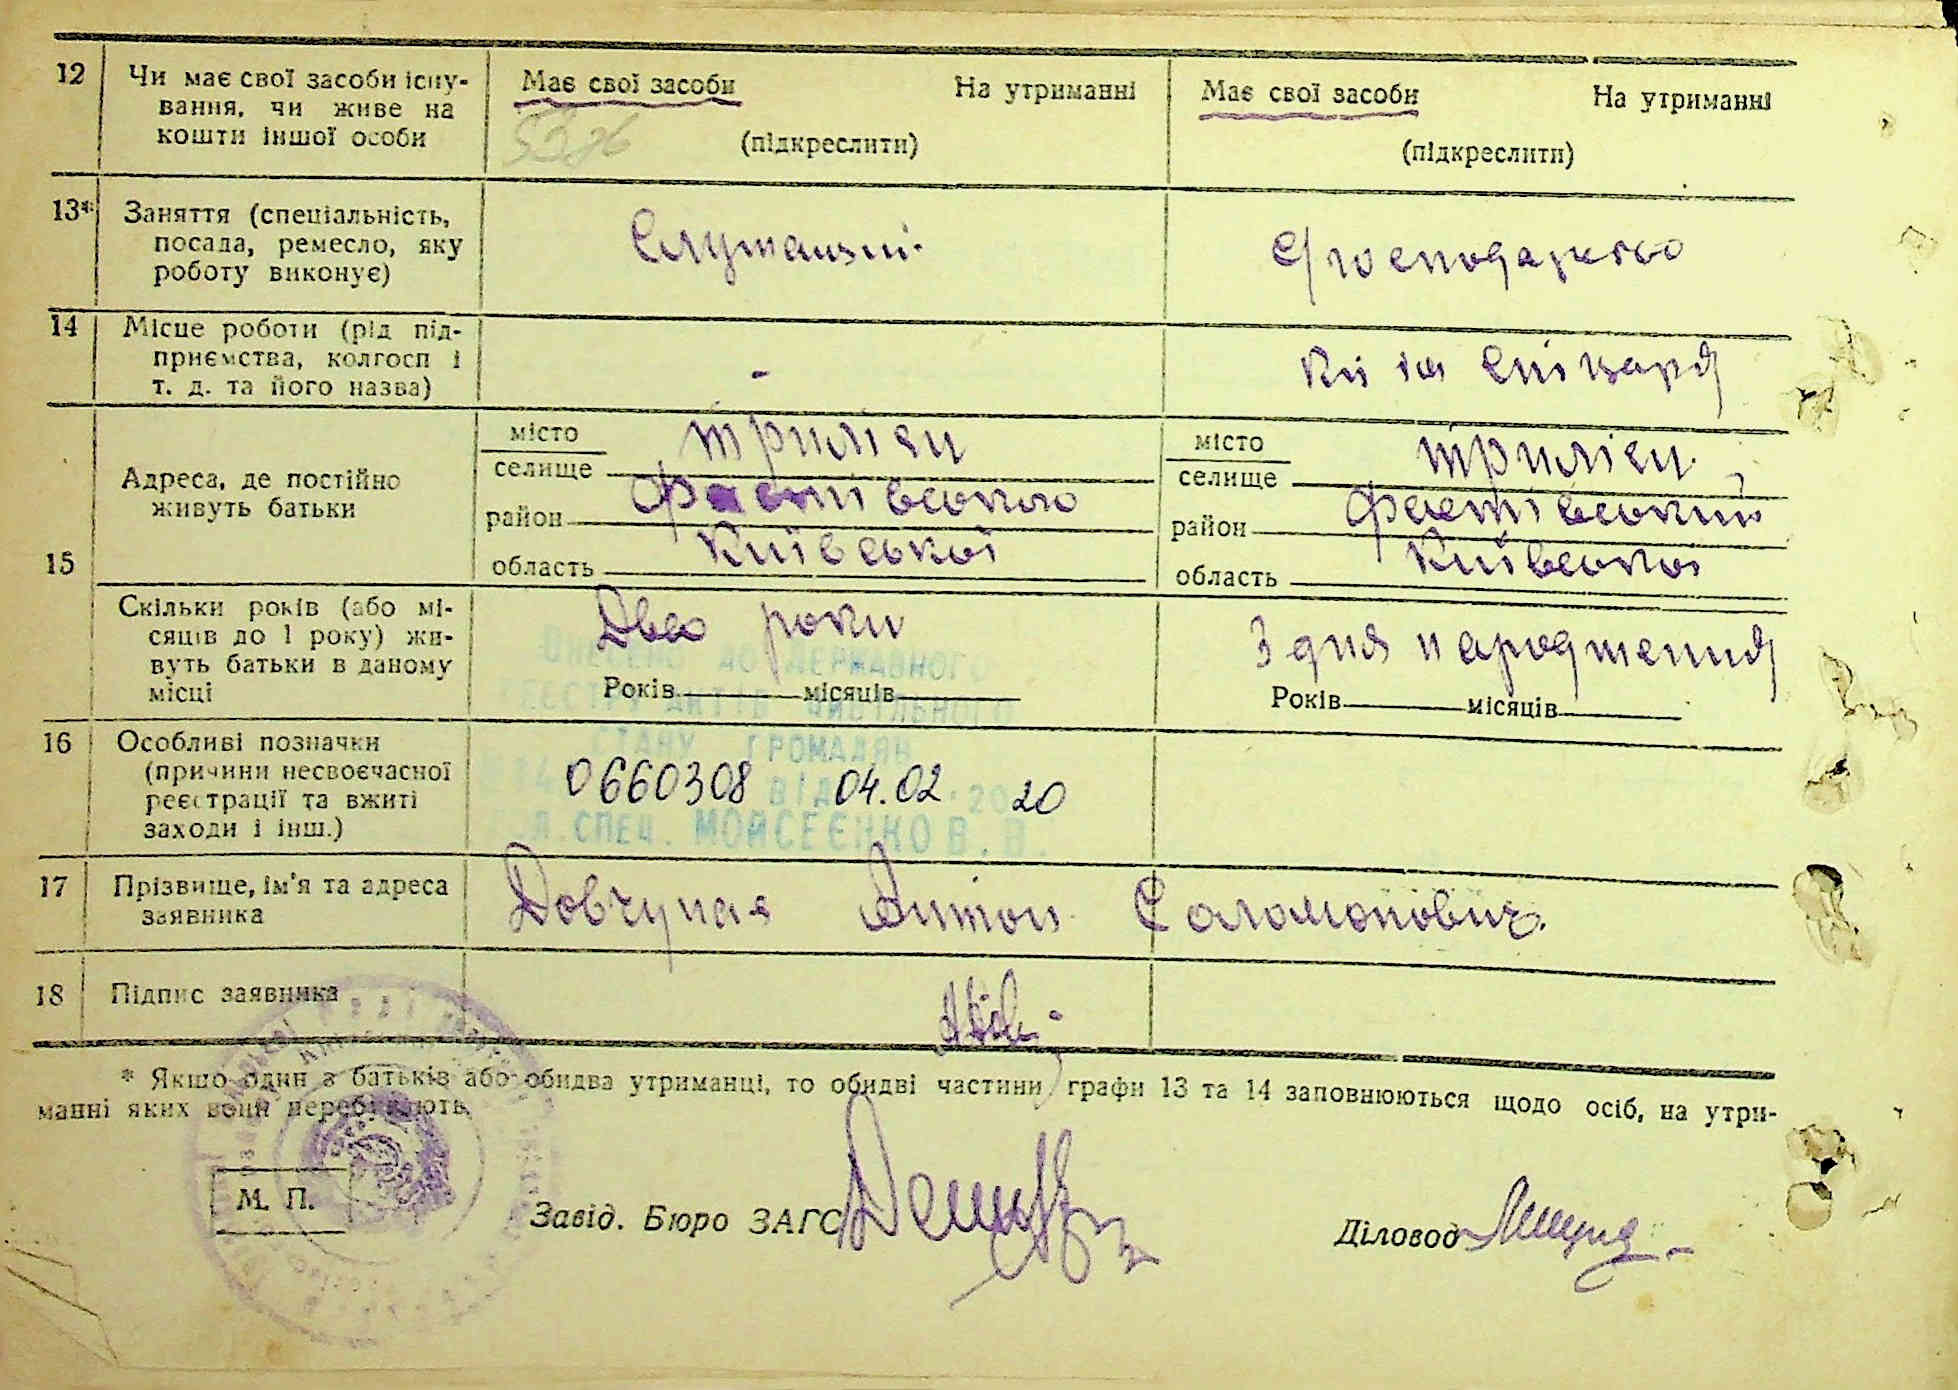 12 Чи має свої засоби існу-
вання, чи живе на
кошти іншої особи
Має свої засоби На утриманні
(підкреслити)
Має свої засоби На утриманні
(підкреслити)
13* Заняття (спеціальність,
посада, ремесло, яку
роботу виконує)
Служащий
господарство
14 Місце роботи (рід під-
приємства, колгосп і
т. д. та його назва)
-
15
Адреса, де постійно
живуть батьки
місто
селище Триліси
район Фастівського
область Київської
місто
селище Триліси
район Фастівський
область Київської
Скільки років (або мі-
сяців до 1 року) жи-
вуть батьки в даному
місці
Два роки
Років місяців
З дня народження
Років місяців
16 Особливі позначки
(причини несвоєчасної
реєстрації та вжиті
заходи і інш.)
ВНЕСЕНО ДО ДЕРЖАВНОГО
РЕЄСТРУ АКТІВ ЦИВІЛЬНОГО
СТАНУ ГРОМАДЯН
0660308 від 04.02.2020
ГОЛ.СПЕЦ. МОЙСЕЄНКО В. В.
17 Прізвище, ім'я та адреса
заявника
Антон Соломонович.
18 Підпис заявника
* Якщо один з батьків або обидва утриманці, то обидві частини графи 13 та 14 заповнюються щодо осіб, на утри-
манні яких вони перебувають.
М. П.
Завід. Бюро ЗАГС
Діловод